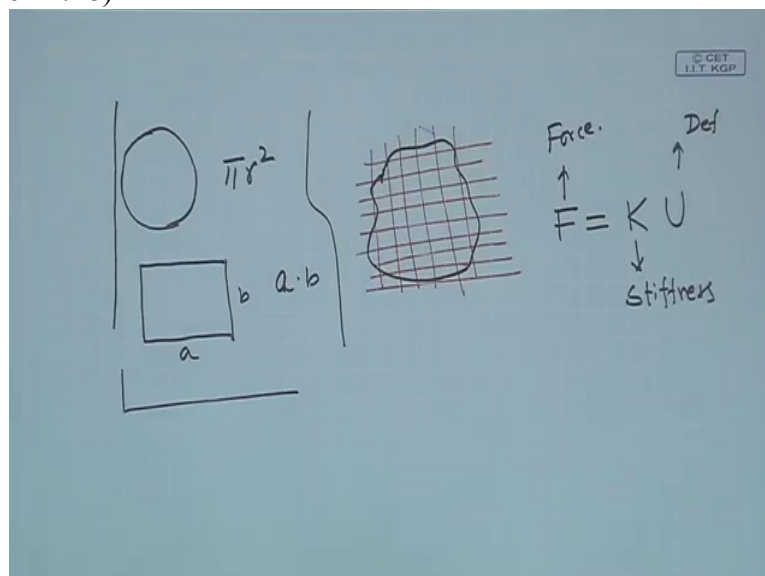 © CET
I.I.T. KGP
πr²
b
a·b
a
Force.
Def
F = K U
Stiffness